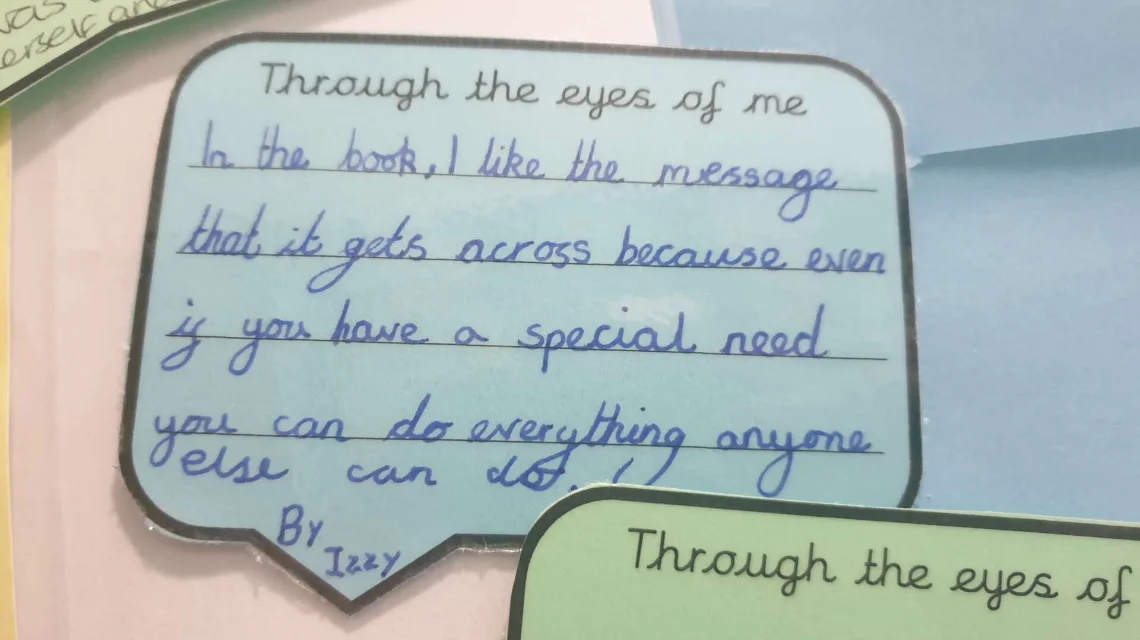 was
erself an
Through the eyes of me
In the book, I like the message
that it gets across because even
if you have a special need
you can do everything anyone
else can do.
By
Izzy
Through the eyes of